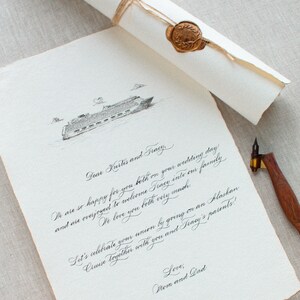 Dear Kurtis and Tracy,
We are so happy for you both on your wedding day
and are overjoyed to welcome Tracy into our family.
We love you both very much.
Let's celebrate your union by going on an Alaskan
Cruise together with you and Tracy's parents
Love,
Mom and Dad